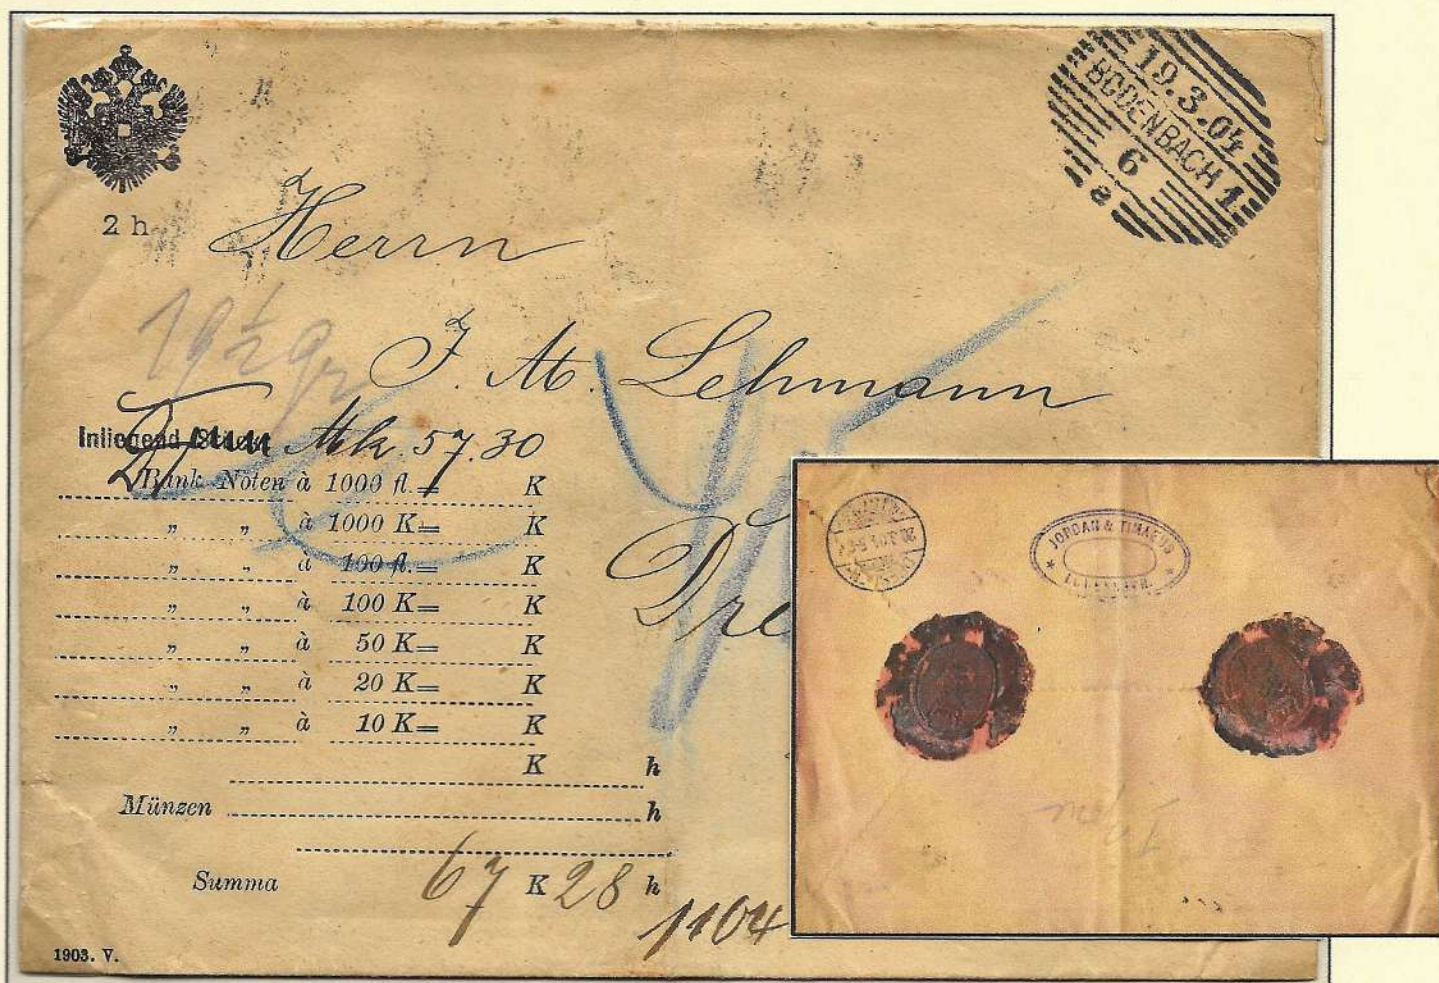 19.3.04
BODENBACH 1
6
a
2 h
Herrn
19½ gr
J. M. Lehmann
Inliegend Mk. 57.30
Bank Noten à 1000 fl.= K
" " à 1000 K= K
" " à 100 fl.= K
" " à 100 K= K
" " à 50 K= K
" " à 20 K= K
" " à 10 K= K
K h
Münzen h
Summa 67 K 28 h
1104
1903. V.
Dre
JORDAN & TIMAEUS